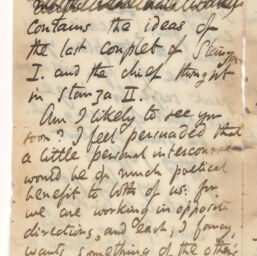 contains the ideas of
the last couplet of Stanza
I. and the chief thought
in Stanza II.
Am I likely to see you
soon? I feel persuaded that
a little personal intercourse
would be of much poetical
benefit to both of us: for
we are working in opposite
directions, and each, I fancy,
wants something of the other's